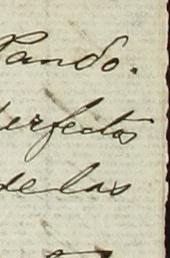 Pando.
perfectos
de las